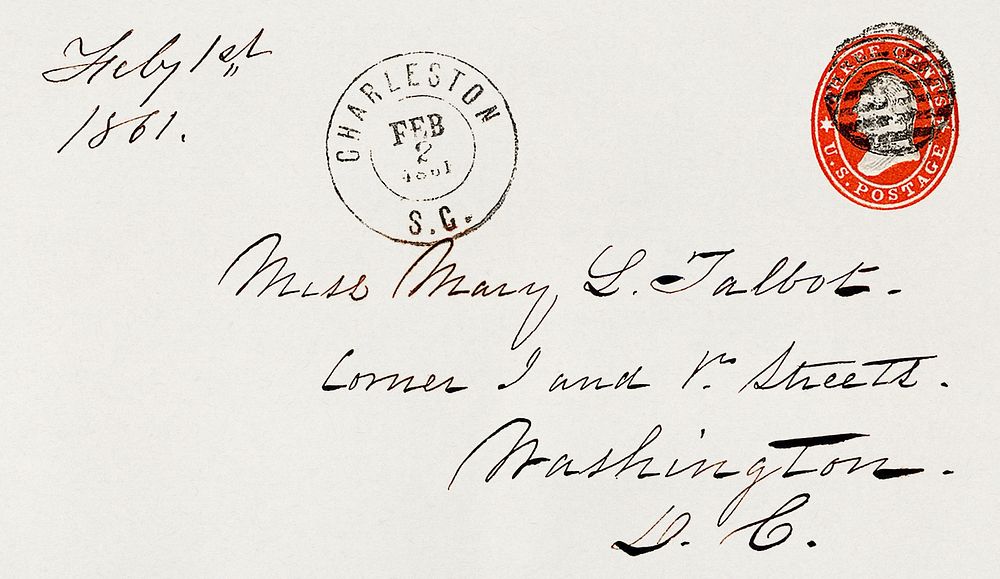 Feby 1st
1861.
CHARLESTON
FEB
2
1861
S.C.
THREE CENTS
U.S. POSTAGE
Miss Mary L. Talbot.
Corner I and Streets.
Washington.
D. C.